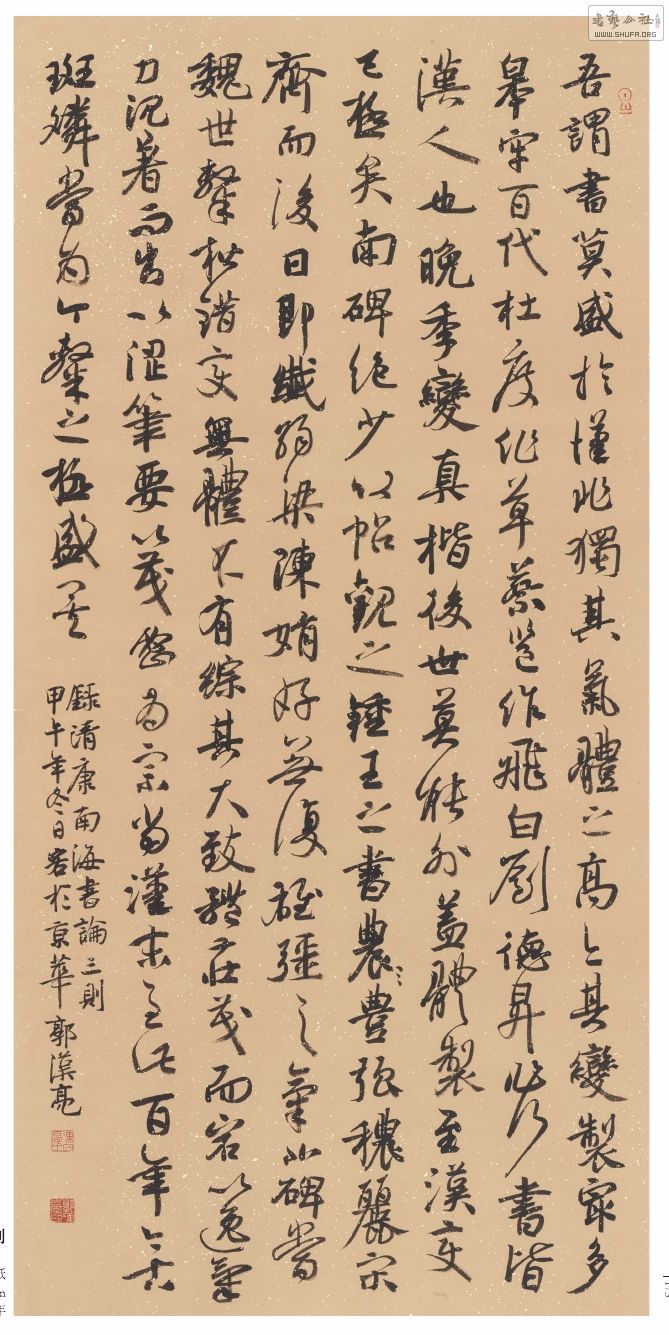 吾謂書莫盛於漢非獨其氣體之高亦其變製最多
皋牢百代杜度作草蔡邕作飛白劉德昇作行書皆
漢人也晚季變真楷後世莫能外蓋體製至漢變
已極矣南碑絕少以帖觀之鍾王之書農豊強穠麗宋
齊而後日即纖弱梁陳娟好無復雄強之氣北碑當
魏世隸楷錯變無體不有綜其大致體莊茂而宕以逸氣
力沉着而出以澀筆要以茂密為宗當漢末至此百年今古
斑斕當為今隸之極盛矣
錄清康南海書論三則
甲午年冬日客於京華 郭漢亮
書藝公社
WWW.SHUFA.ORG